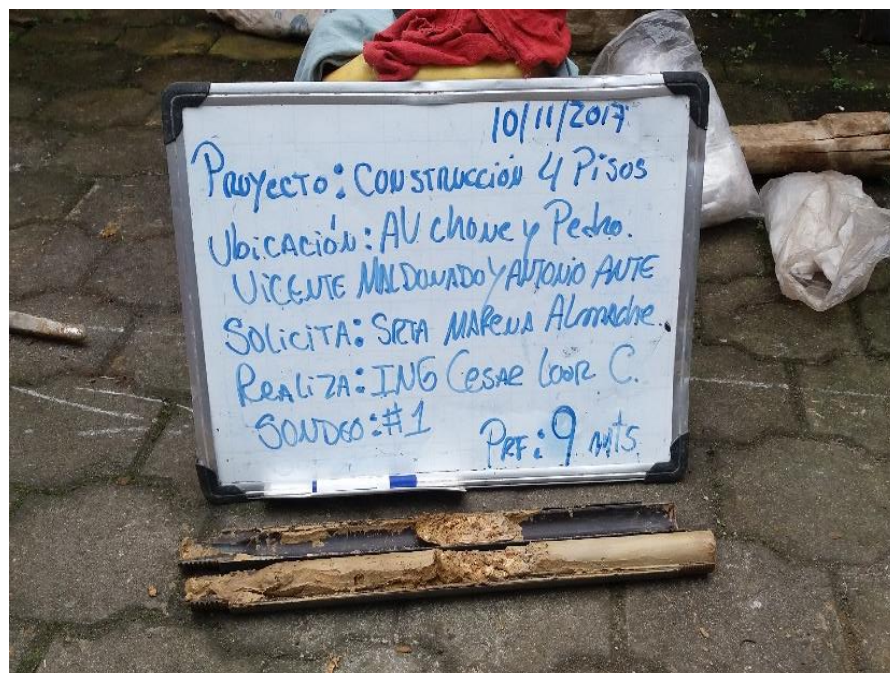 10/11/2017
Proyecto: Construcción 4 Pisos
Ubicación: AV. Chone y Pedro.
Vicente Maldonado y Antonio Ante
Solicita: Srta Marena Almache.
Realiza: ING Cesar Loor C.
Sondeo: #1
Prf: 9 mts